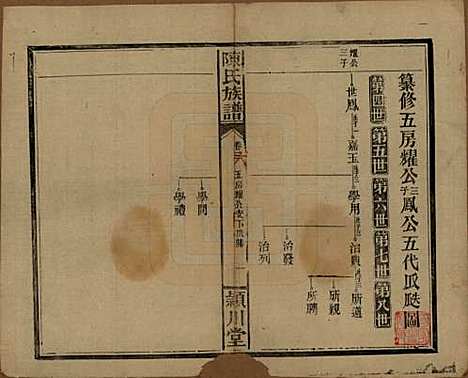 纂修五房耀公三子鳳公五代瓜瓞圖
第四世 第五世 第六世 第七世 第八世
耀公三子
世鳳
嘉玉
學用
治典
所道
所親
所聘
治發
治列
陳氏族譜
卷
五房耀公支下世系
潁川堂
學問
學禮